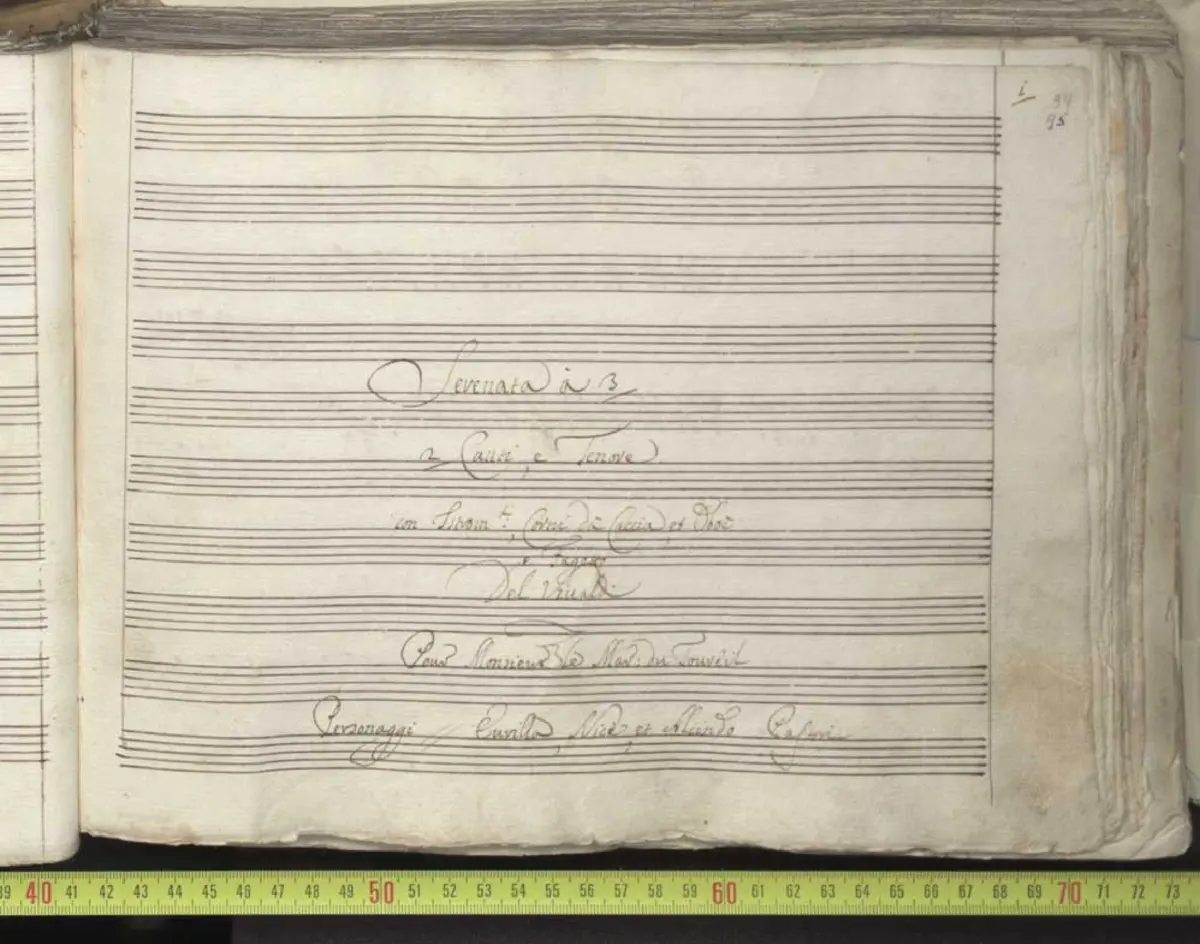 i
94
95
Serenata à 3
2 Canti, e Tenore
con Istrom.ti, Corni dà Caccia, et Oboè
e Fagotto
Del Viualdi
Pour Monsieur le Mar: du Toureil
Personaggi Eurilla, Nice, et Alcindo Pastori
39 40 41 42 43 44 45 46 47 48 49 50 51 52 53 54 55 56 57 58 59 60 61 62 63 64 65 66 67 68 69 70 71 72 73